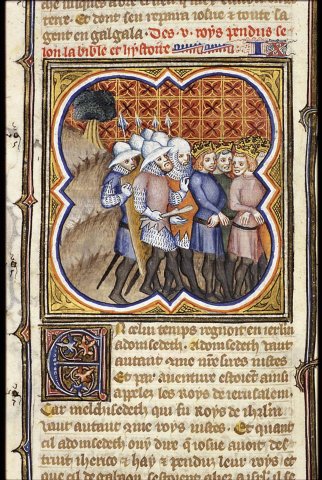 terre. Et dont sen repaira iosue & toute sa
gent en galgala. Des .v. roys pendus se
lon la bible et hystoire
En celui temps regnoit en ierl'm
adonisedech. Adonisedech vault
autant que nostres iustes
Et par aventure estoient ainsi
appelez les roys de iherusalem.
Car melchisedech qui fu roys de ih'rl'm
vault autant que roys iustes. Et quant
cil adonisedech ouy dire que iosue avoit des
truit iherico & hay & pendu leur roys et
que cil de gabaon sestoient aliez a isrl' il se